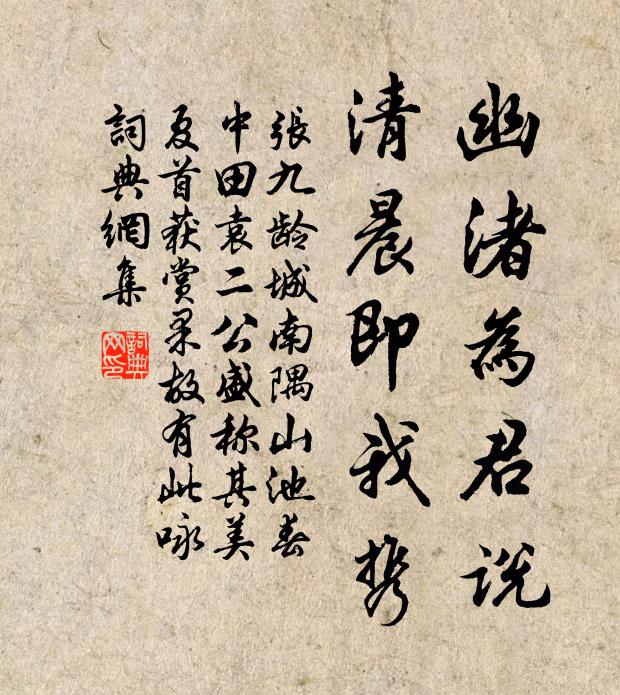 幽渚為君説
清晨即我携
張九龄城南隅山池春
中田袁二公盛称其美
夏首获賞果故有此咏
詞典網集
詞典
网印